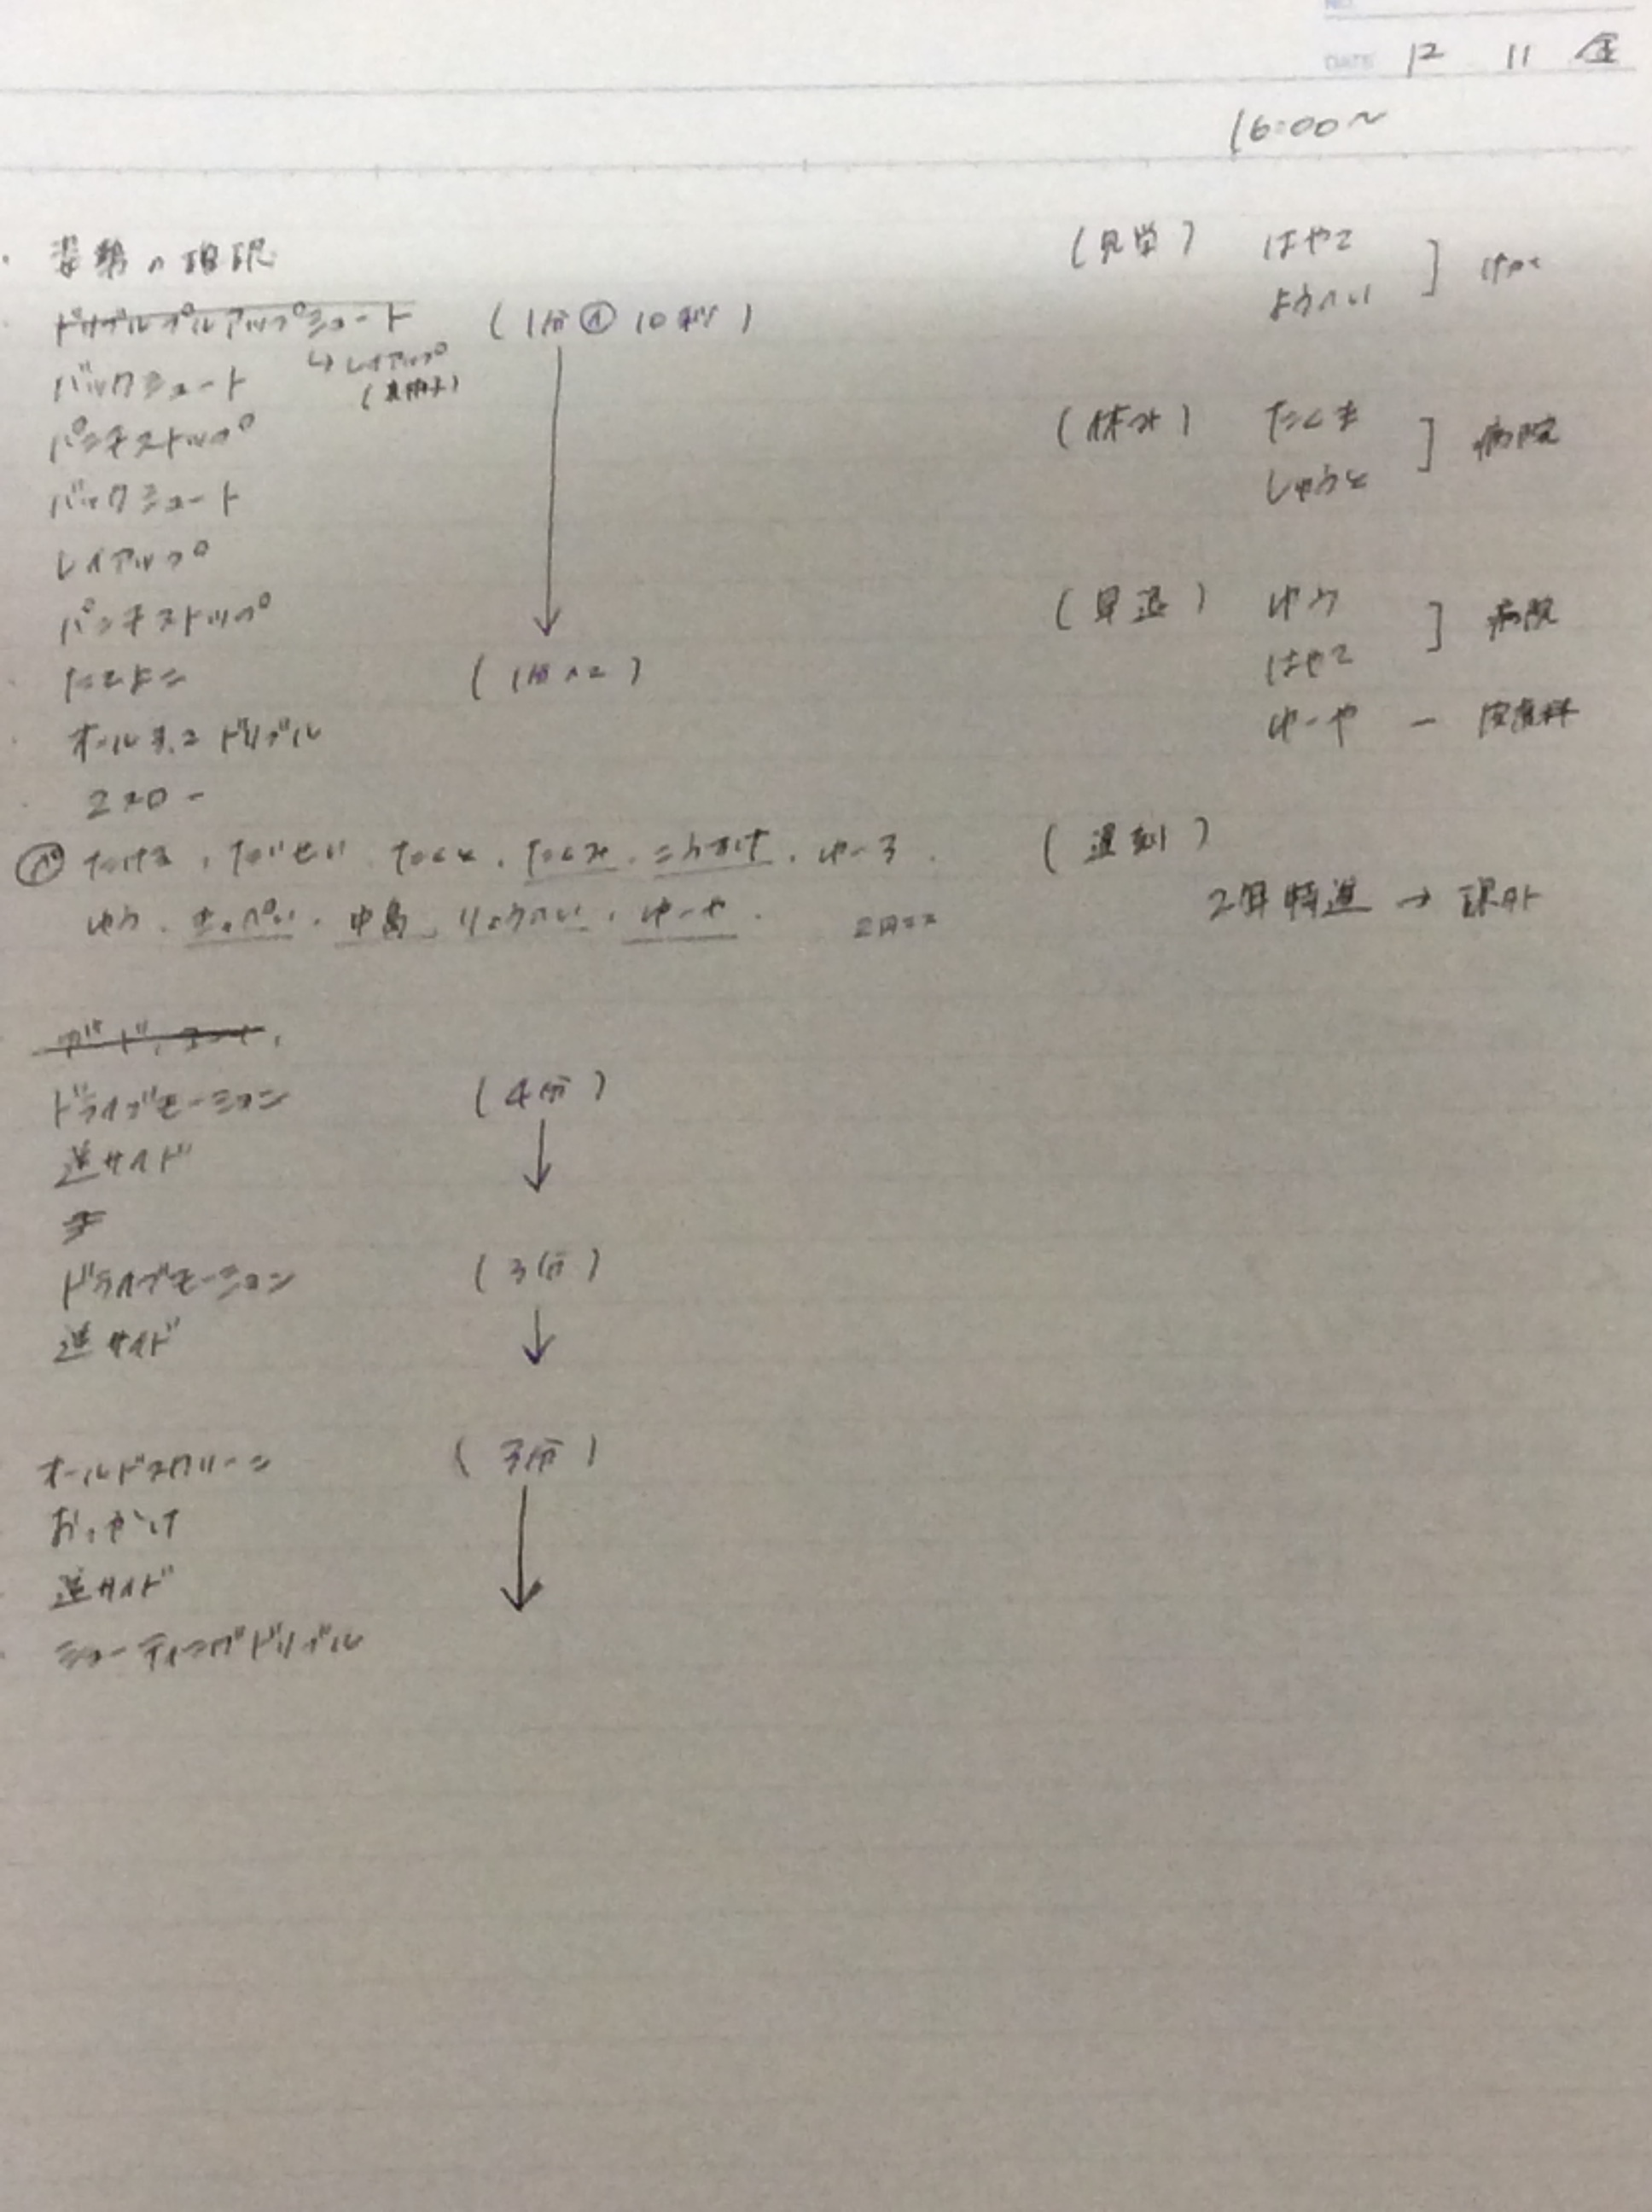 DATE 12 11 金
16:00〜
・姿勢の確認
ドリブルプルアップシュート (1分 10秒)
↳レイアップ
バックシュート
パンチストップ
バックシュート
レイアップ
パンチストップ
・たてよこ (1分×2)
・オール1,2ドリブル
・2スロー
たける、たいせい、たくと、たくみ、こうすけ、ゆーろ、
ゆう、きっぺい、中島、りょうへい、ゆーや、
ドライブモーション (4分)
逆サイド ↓
ドライブモーション (3分)
逆サイド ↓
オールドスクリーン (3分)
おっかけ
逆サイド
・シューティングドリブル
(見学) はやて
ようへい ] けが
(休み) たくま
しゅうと ] 病院
(早退) ゆう
はやて ] 病院
ゆーや ー 皮膚科
(遅刻)
2年特進 → 課外